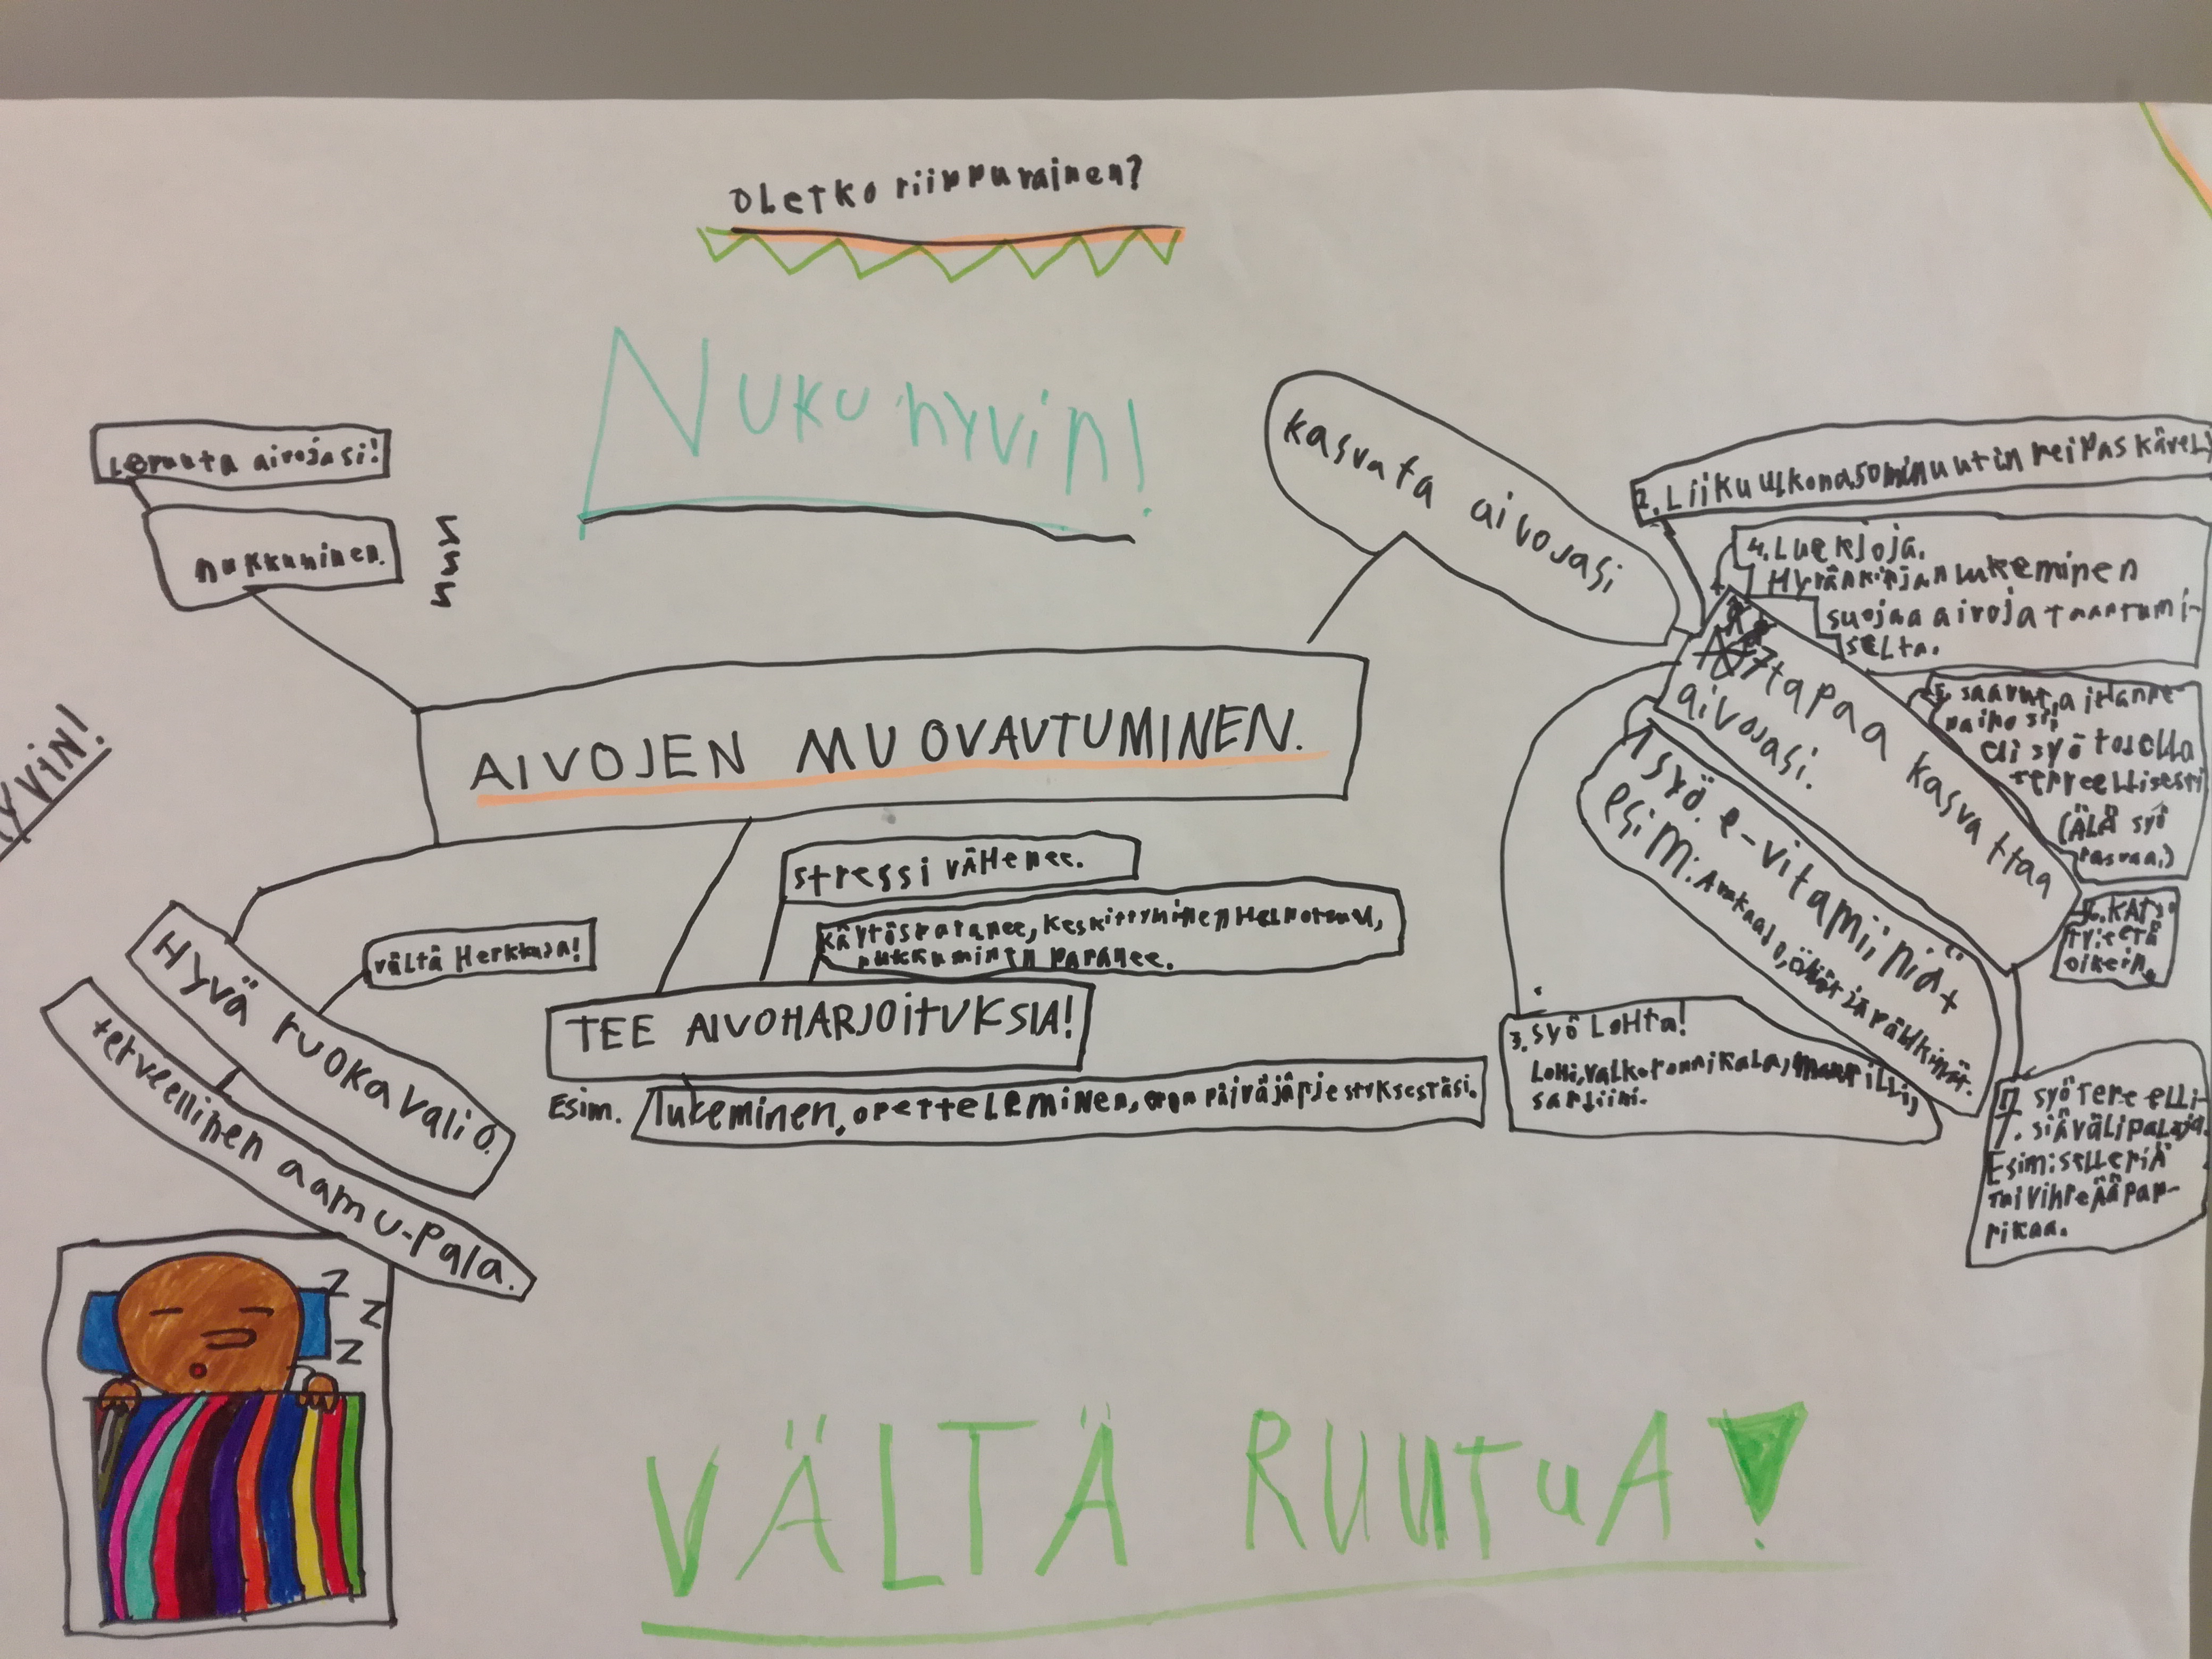 oletko riippuvainen?
Nuku hyvin!
Lepuuta aivojasi!
nukkuminen.
kasvata aivojasi
2. Liiku ulkona, 50 minuutin reipas kävely
4. Lue kjoja.
Hyvän kirjan lukeminen
suojaa aivoja taantumi-
selta.
7 tapaa kasvattaa
aivojasi.
5. saavuta ihanne-
paino si,
eli syö todella
terveellisesti
(ÄLÄ syö
rasvaa.)
AIVOJEN MUOVAUTUMINEN.
yvin!
1 syö. e-vitamiiniä+
esim: Avokado, öljyt ja pähkinät.
6.
oikein.
stressi vähenee.
käytös paranee, keskittyminen helpotuu,
nukkuminen paranee.
vältä Herkkuja!
Hyvä ruokavalio.
terveellinen aamu-pala.
TEE AIVOHARJOITUKSIA!
Esim. lukeminen, opetteleminen, eron päiväjärjestyksestäsi.
3. syö Lohta!
Lohi, valkotonnikala, makrilli,
sardiini.
7. syö terveelli-
siä välipaloja.
Esim: selleriä
tai vihreää pap-
rikaa.
Z
Z
Z
VÄLTÄ RUUTUA!